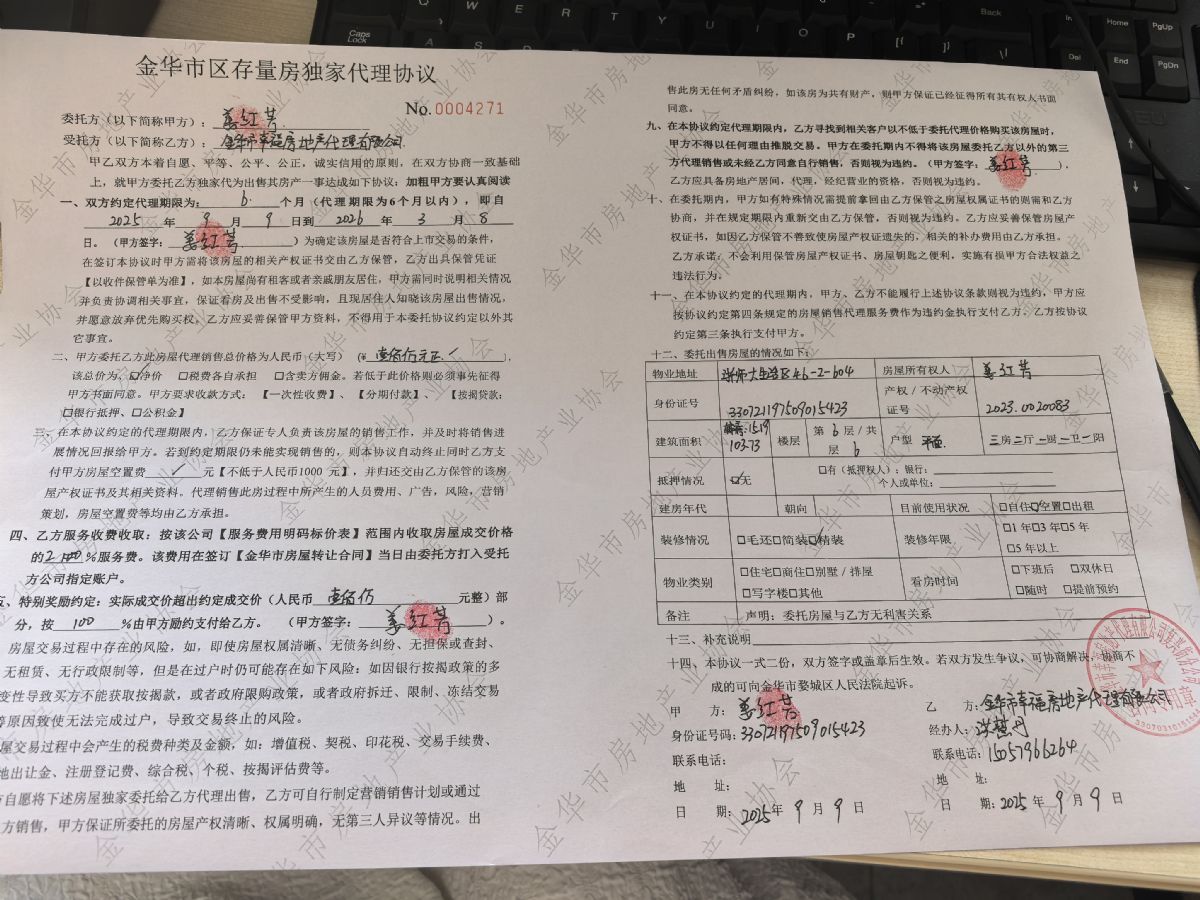 金华市区存量房独家代理协议
No.0004271
委托方（以下简称甲方）：姜红芳
受托方（以下简称乙方）：金华市幸福房地产代理有限公司
甲乙双方本着自愿、平等、公平、公正，诚实信用的原则，在双方协商一致基础
上，就甲方委托乙方独家代为出售其房产一事达成如下协议：加粗甲方要认真阅读
一、双方约定代理期限为：6个月（代理期限为6个月以内），即自
2025年9月9日到2026年3月8
日。（甲方签字：姜红芳）为确定该房屋是否符合上市交易的条件，
在签订本协议时甲方需将该房屋的相关产权证书交由乙方保管，乙方出具保管凭证
【以收件保管单为准】，如本房屋尚有租客或者亲戚朋友居住，甲方需同时说明相关情况
并负责协调相关事宜，保证看房及出售不受影响，且现居住人知晓该房屋出售情况，
并愿意放弃优先购买权。乙方应妥善保管甲方资料，不得用于本委托协议约定以外其
它事宜。
二、甲方委托乙方此房屋代理销售总价格为人民币（大写）（¥壹佰万元正），
该总价为：☑净价 □税费各自承担 □含卖方佣金。若低于此价格则必须事先征得
甲方书面同意。甲方要求收款方式：【一次性收费】、【分期付款】、【按揭贷款：
□银行抵押、□公积金】
三、在本协议约定的代理期限内，乙方保证专人负责该房屋的销售工作，并及时将销售进
展情况回报给甲方。若到约定期限仍未能实现销售的，则本协议自动终止同时乙方支
付甲方房屋空置费/元【不低于人民币1000 元】，并归还交由乙方保管的该房
屋产权证书及其相关资料。代理销售此房过程中所产生的人员费用、广告，风险，营销
策划，房屋空置费等均由乙方承担。
四、乙方服务收费收取：按该公司【服务费用明码标价表】范围内收取房屋成交价格
%服务费。该费用在签订【金华市房屋转让合同】当日由委托方打入受托
方公司指定账户。
五、特别奖励约定：实际成交价超出约定成交价（人民币壹佰万元整）部
分，按100%由甲方励约支付给乙方。（甲方签字：姜红芳）。
房屋交易过程中存在的风险，如，即使房屋权属清晰、无债务纠纷、无担保或查封、
无租赁、无行政限制等，但是在过户时仍可能存在如下风险：如因银行按揭政策的多
变性导致买方不能获取按揭款，或者政府限购政策，或者政府拆迁、限制、冻结交易
等原因致使无法完成过户，导致交易终止的风险。
屋交易过程中会产生的税费种类及金额，如：增值税、契税、印花税、交易手续费、
地出让金、注册登记费、综合税、个税、按揭评估费等。
自愿将下述房屋独家委托给乙方代理出售，乙方可自行制定营销销售计划或通过
方销售，甲方保证所委托的房屋产权清晰、权属明确，无第三人异议等情况。出
售此房无任何矛盾纠纷，如该房为共有财产，则甲方保证已经征得所有其有权人书面
同意。
九、在本协议约定代理期限内，乙方寻找到相关客户以不低于委托代理价格购买该房屋时，
甲方不得以任何理由推脱交易。甲方在委托期内不得将该房屋委托乙方以外的第三
方代理销售或未经乙方同意自行销售，否则视为违约。（甲方签字：姜红芳），
乙方应具备房地产居间，代理，经纪营业的资格，否则视为违约。
十、在委托期内，甲方如有特殊情况需提前拿回由乙方保管之房屋权属证书的则需和乙方
协商，并在规定期限内重新交由乙方保管，否则视为违约。乙方应妥善保管房屋产
权证书，如因乙方保管不善致使房屋产权证遗失的，相关的补办费用由乙方承担。
乙方承诺：不会利用保管房屋产权证书、房屋钥匙之便利，实施有损甲方合法权益之
违法行为。
十一、在本协议约定的代理期内，甲方、乙方不能履行上述协议条款则视为违约，甲方应
按协议约定第四条规定的房屋销售代理服务费作为违约金执行支付乙方。乙方按协议
约定第三条执行支付甲方。
十二、委托出售房屋的情况如下：
物业地址 浙师大生活区46-2-604 房屋所有权人 姜红芳
身份证号 330721197509015423 产权/不动产权证号 2023.0020083
建筑面积 15.19 103.73 楼层 第6层/共6层 户型 平面 三房二厅一厨一卫一阳
抵押情况 ☑无 □有（抵押权人）；银行： 个人或单位：
建房年代 朝向 目前使用状况 □自住☑空置□出租
装修情况 □毛还□简装☑精装 装修年限 □1年□3年□5年 □5年以上
物业类别 □住宅□商住□别墅/排屋 □写字楼□其他 看房时间 □下班后 □双休日 □随时 □提前预约
备注 声明：委托房屋与乙方无利害关系
十三、补充说明
十四、本协议一式二份，双方签字或盖章后生效。若双方发生争议，可协商解决，协商不
成的可向金华市婺城区人民法院起诉。
甲 方：姜红芳 乙 方：金华市幸福房地产代理有限公司
身份证号码：330721197509015423 经办人：洪慧丹
联系电话： 联系电话：15057966264
地 址： 地 址：
日 期：2025年9月9日 日 期：2025年9月9日